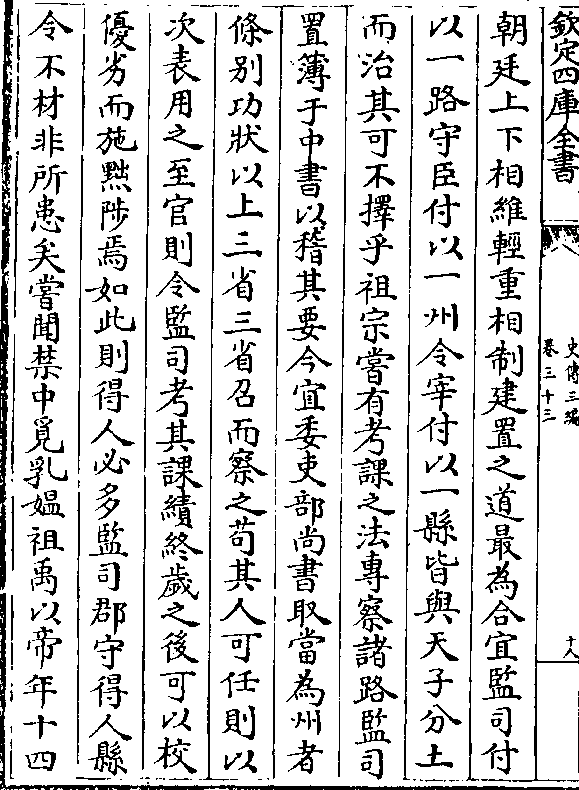 欽定四庫全書
史傳三編
卷三十三
十八
朝廷上下相維輕重相制建置之道最為合宜監司付
以一路守臣付以一州令宰付以一縣皆與天子分土
而治其可不擇乎祖宗嘗有考課之法專察諸路監司
置簿于中書以稽其要今宜委吏部尚書取當為州者
條别功狀以上三省三省召而察之苟其人可任則以
次表用之至官則令監司考其課績終歲之後可以校
優劣而施黜陟焉如此則得人必多監司郡守得人縣
令不材非所患矣嘗聞禁中覓乳媼祖禹以帝年十四